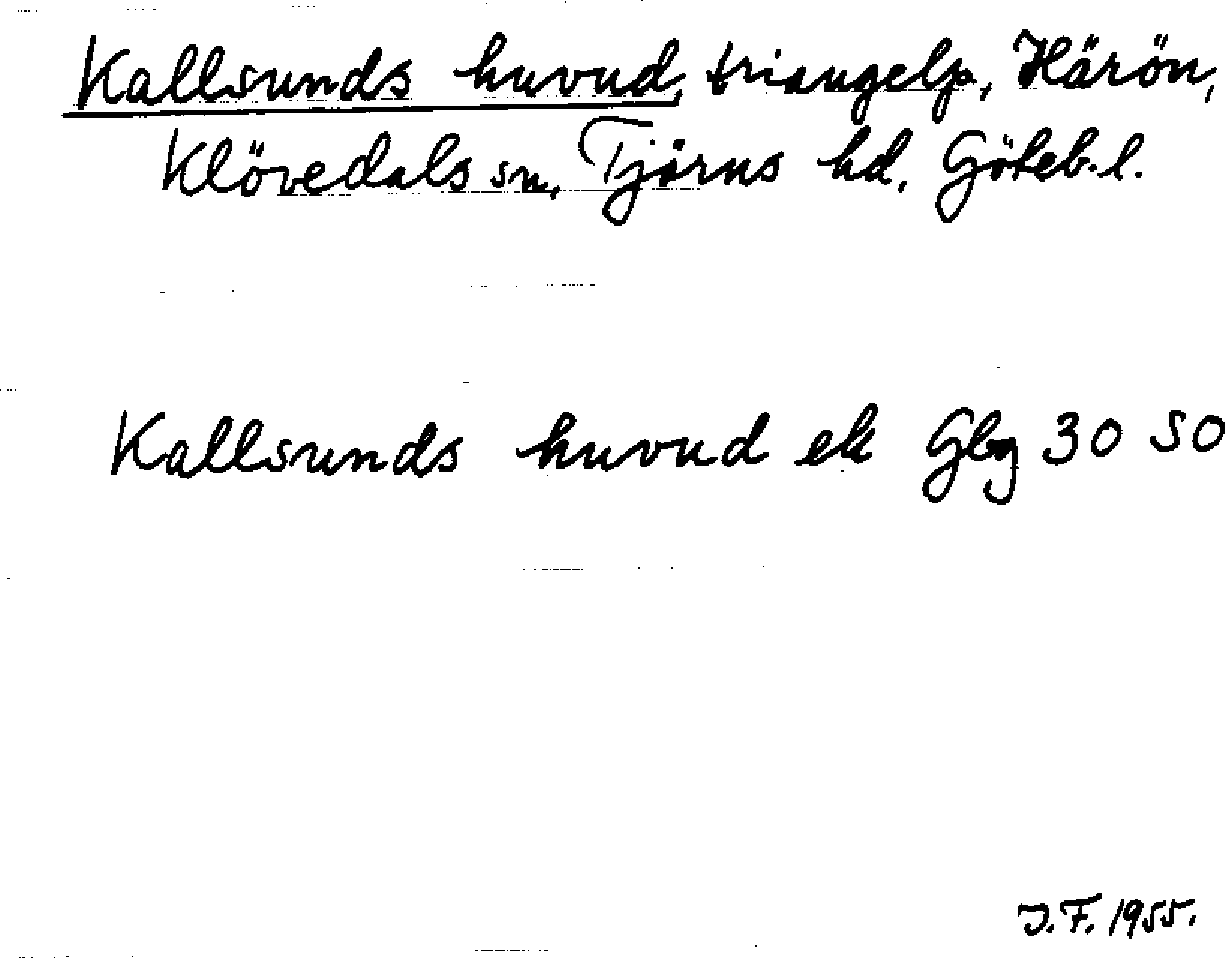 Kallsunds huvud, triangelp., Härön,
Klövedals sn, Tjörns hd, Göteb. l.
Kallsunds huvud ek Gbg 30 SO
J.F. 1955.